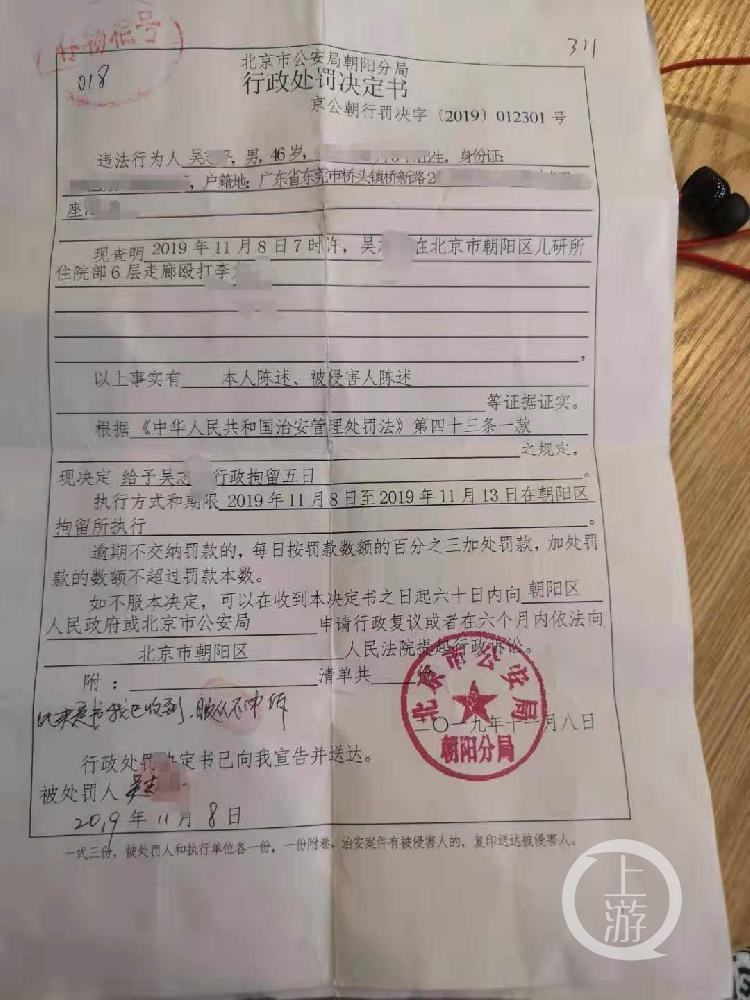 311
018
北京市公安局朝阳分局
行政处罚决定书
京公朝行罚决字〔2019〕012301号
违法行为人 吴 男，46岁， 出生，身份证：
，户籍地：广东省东莞市桥头镇桥新路2
座
现查明 2019年11月8日7时许，吴 在北京市朝阳区儿研所
住院部6层走廊殴打李
，
以上事实有 本人陈述、被侵害人陈述
等证据证实。
根据 《中华人民共和国治安管理处罚法》第四十三条一款
之规定，
现决定 给予吴志 行政拘留五日。
执行方式和期限 2019年11月8日至2019年11月13日在朝阳区
拘留所执行。
逾期不交纳罚款的，每日按罚款数额的百分之三加处罚款，加处罚
款的数额不超过罚款本数。
如不服本决定，可以在收到本决定书之日起六十日内向 朝阳区
人民政府或北京市公安局 申请行政复议或者在六个月内依法向
北京市朝阳区 人民法院提起行政诉讼。
附： 清单共 份
此决定书我已收到，服从不申诉
北京市公安局
朝阳分局
二〇一九年十一月八日
行政处罚决定书已向我宣告并送达。
被处罚人 吴志
2019年11月8日
一式三份，被处罚人和执行单位各一份，一份附卷。治安案件有被侵害人的，复印送达被侵害人。
上游